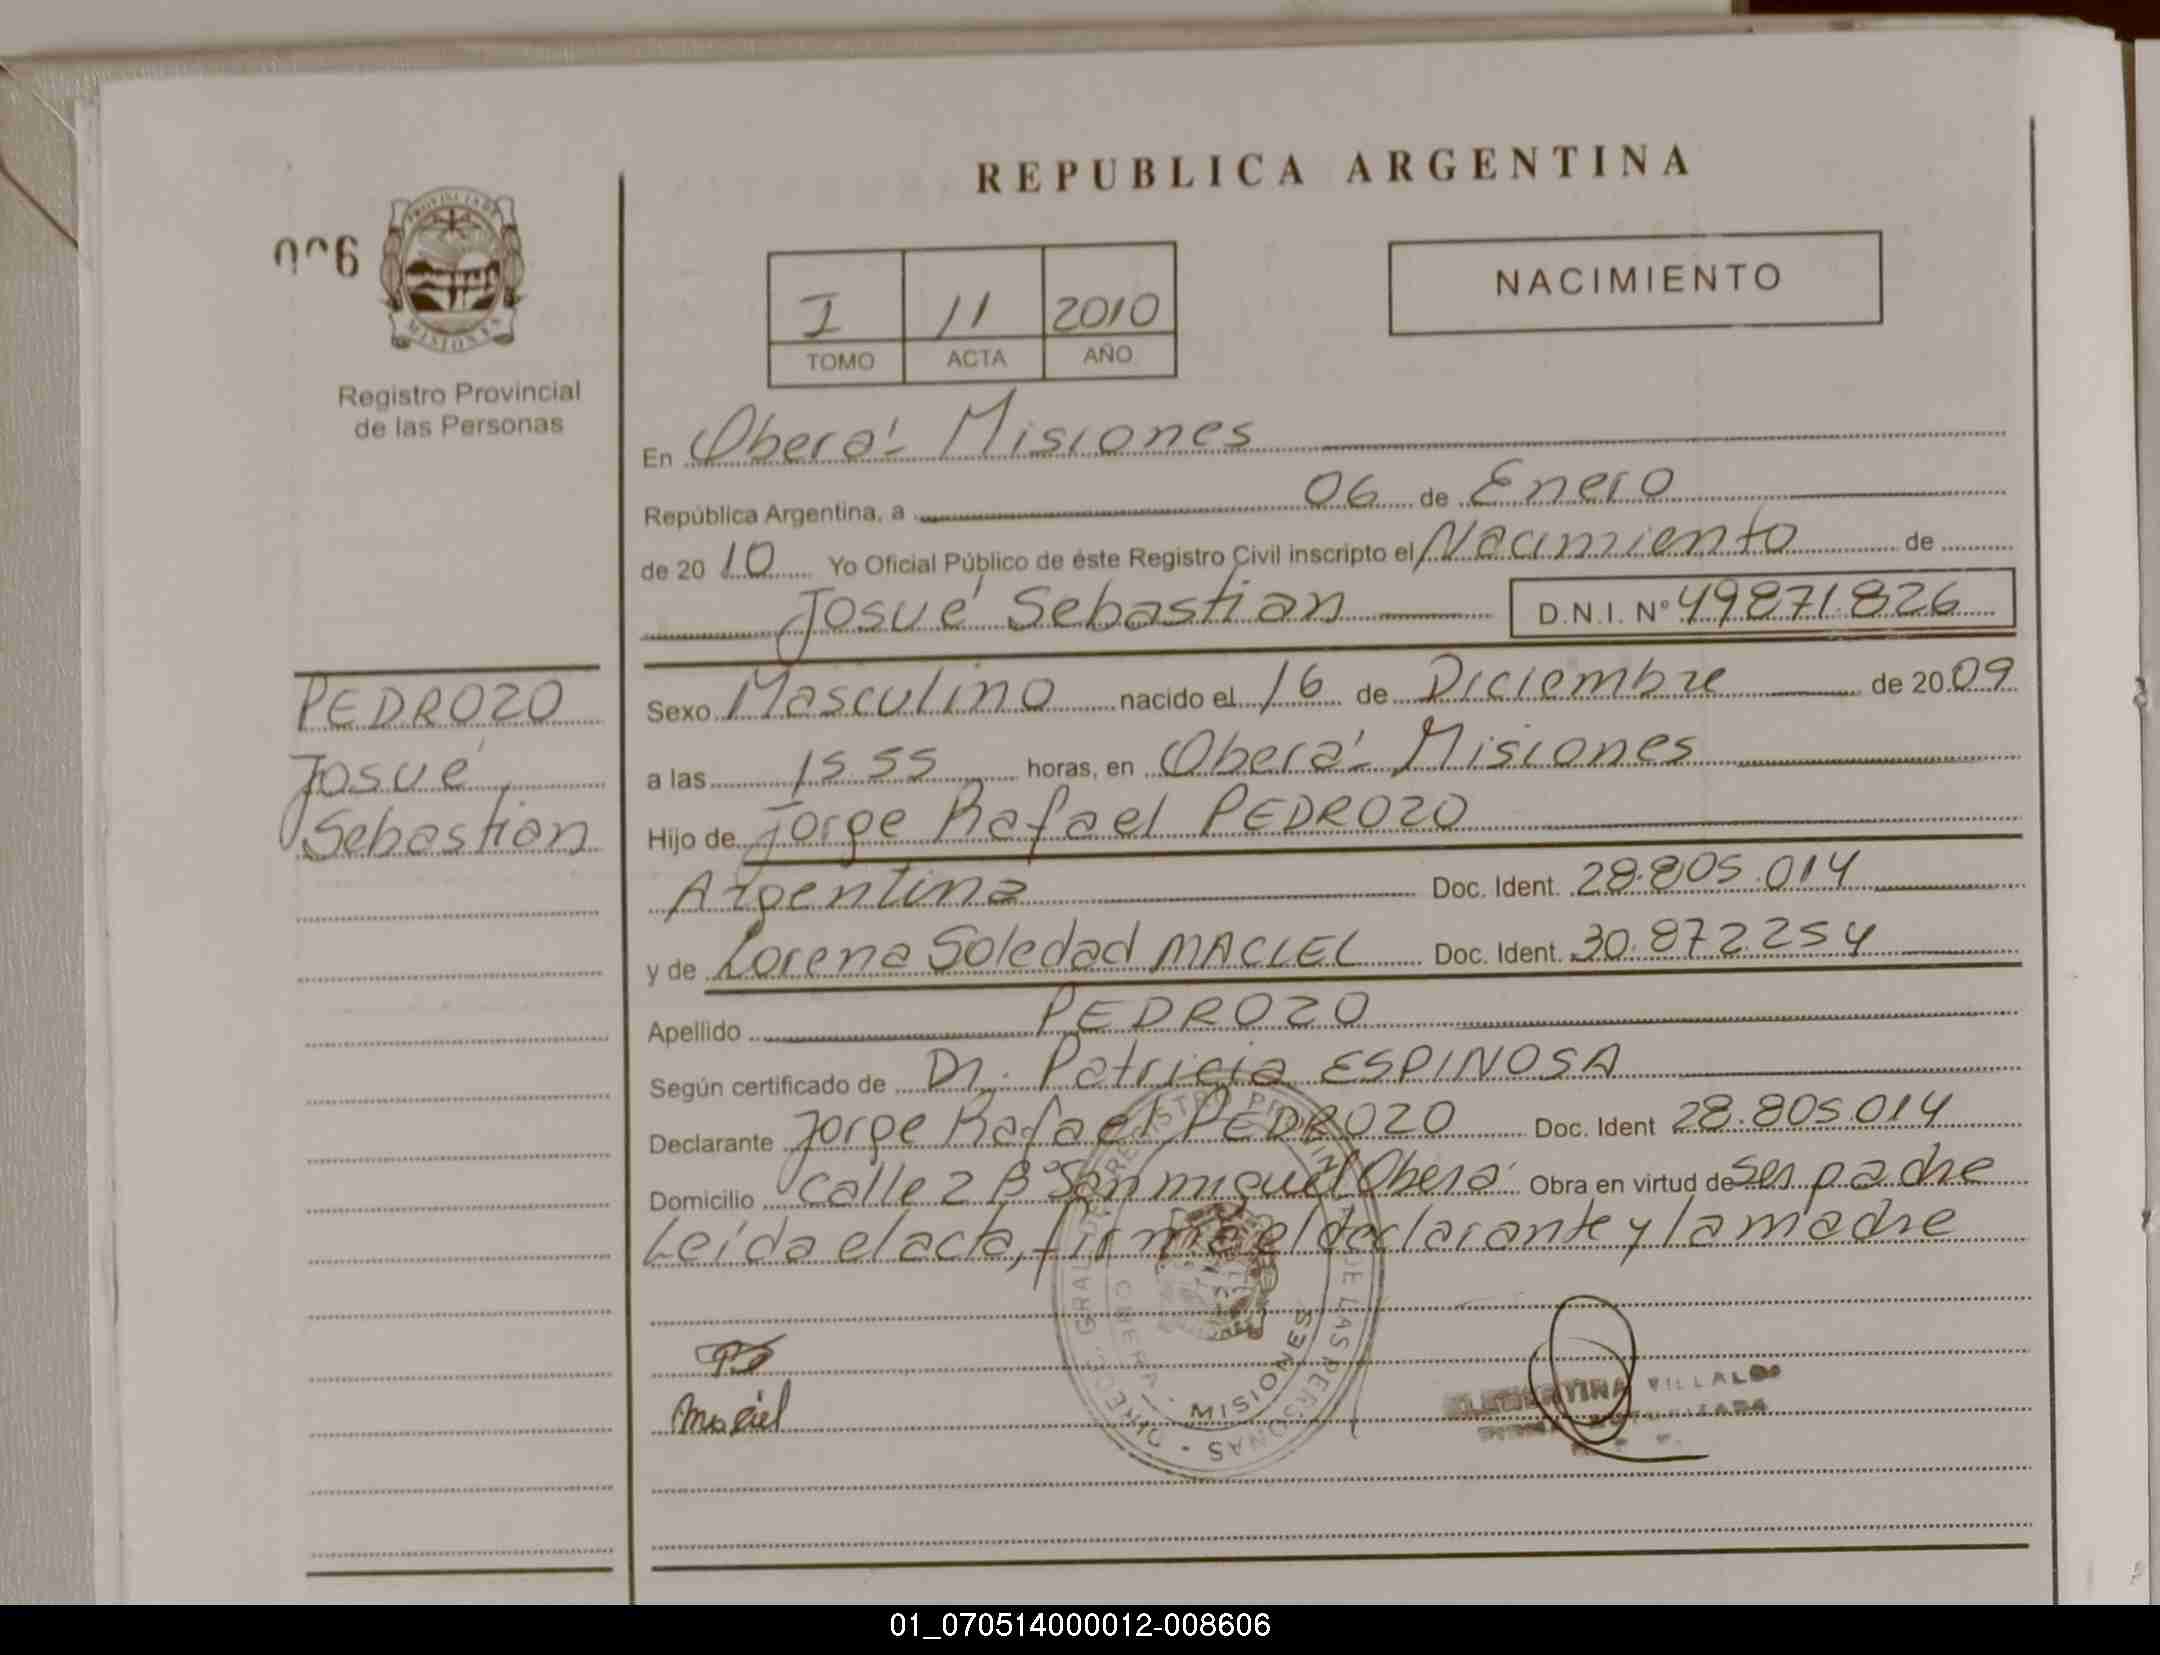 REPUBLICA ARGENTINA
006
PROVINCIA DE
MISIONES
Registro Provincial
de las Personas
I 11 2010
TOMO ACTA AÑO
NACIMIENTO
En Oberá - Misiones
República Argentina, a 06 de Enero
de 20 10 Yo Oficial Público de éste Registro Civil inscripto el Nacimiento de
Josué Sebastian D.N.I. Nº 49871.826
PEDROZO
Josué
Sebastian
Sexo Masculino nacido el 16 de Diciembre de 20 09
a las 15.55 horas, en Oberá - Misiones
Hijo de Jorge Rafael PEDROZO
Argentina Doc. Ident. 28.805.014
y de Lorena Soledad MACIEL Doc. Ident. 30.872.254
Apellido PEDROZO
Según certificado de Dr. Patricia ESPINOSA
Declarante Jorge Rafael PEDROZO Doc. Ident 28.805.014
Domicilio Calle 2 Bº San miguel Oberá Obra en virtud de ser padre
Leída el acta, firma el declarante y la madre
MISIONES
Maciel
VILLALBA
01_070514000012-008606